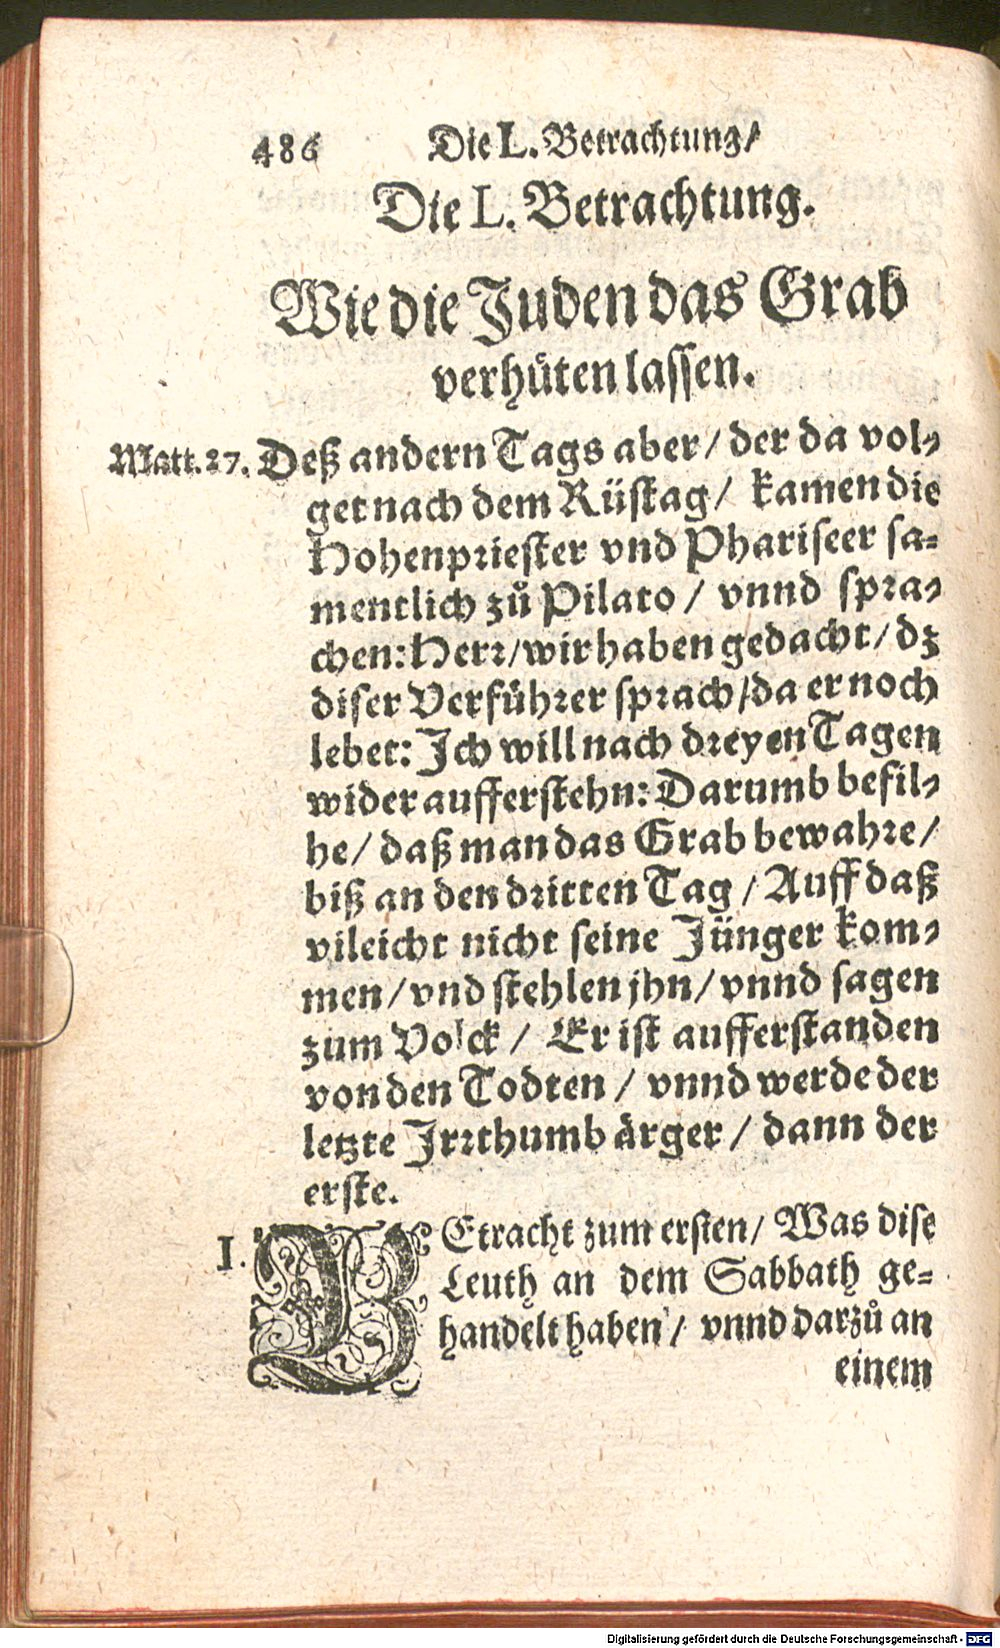 486 Die L. Betrachtung/
Die L. Betrachtung.
Wie die Juden das Grab
verhüten lassen.
Matt. 27. Deß andern Tags aber/ der da vol-
get nach dem Rüstag/ kamen die
Hohenpriester vnd Phariseer sa-
mentlich zů Pilato/ vnnd spra-
chen: Herr/ wir haben gedacht/ dz
diser Verführer sprach/ da er noch
lebet: Ich will nach dreyen Tagen
wider aufferstehn: Darumb befil-
he/ daß man das Grab bewahre/
biß an den dritten Tag/ Auff daß
vileicht nicht seine Jünger kom-
men/ vnd stehlen jhn/ vnnd sagen
zum Volck/ Er ist aufferstanden
von den Todten/ vnnd werde der
letzte Irrthumb ärger/ dann der
erste.
I. BEtracht zum ersten/ Was dise
Leuth an dem Sabbath ge-
handelt haben/ vnnd darzů an
einem
Digitalisierung gefördert durch die Deutsche Forschungsgemeinschaft - DFG